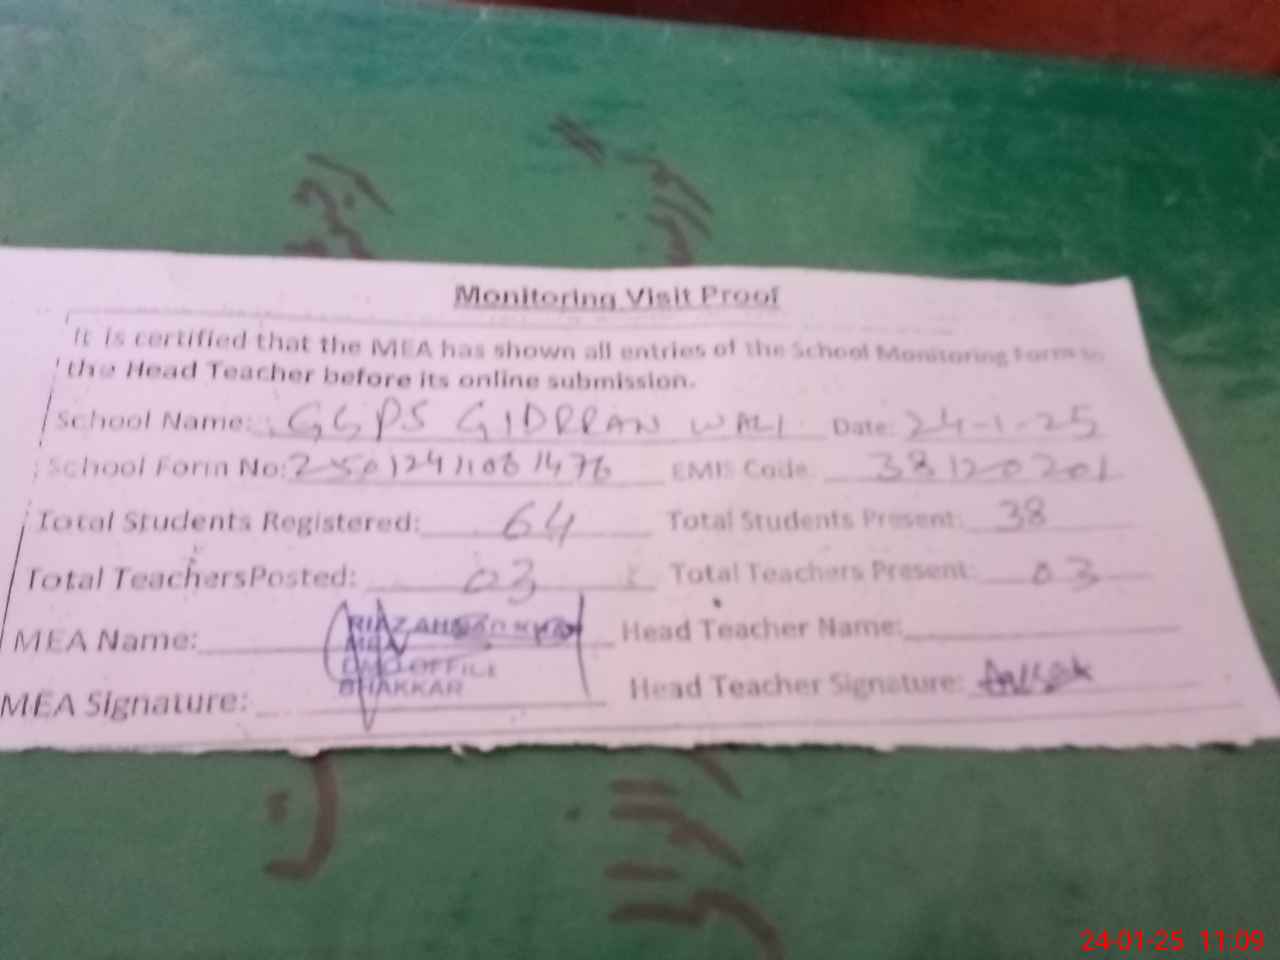 Monitoring Visit Proof
It is certified that the MEA has shown all entries of the School Monitoring Form to
the Head Teacher before its online submission.
School Name: GGPS GIDRRAN WALI Date: 24-1-25
School Form No: EMIS Code: 38120201
Total Students Registered: 64 Total Students Present: 38
Total TeachersPosted: 03 Total Teachers Present: 03
MEA Name: RIAZ Head Teacher Name:
MEA
DMO OFFICE
BHAKKAR
MEA Signature: Head Teacher Signature:
24-01-25 11:09